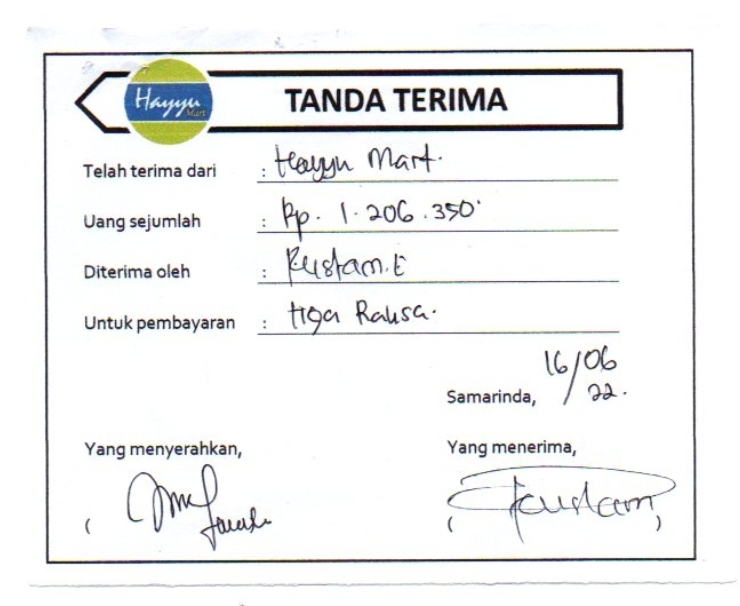 Hayyu
Mart
TANDA TERIMA
Telah terima dari : Hayyu Mart.
Uang sejumlah : Rp. 1.206.350
Diterima oleh : Rustam.E
Untuk pembayaran : Tiga Raksa.
16/06
Samarinda, 22.
Yang menyerahkan, Yang menerima,
( ( Rustam )